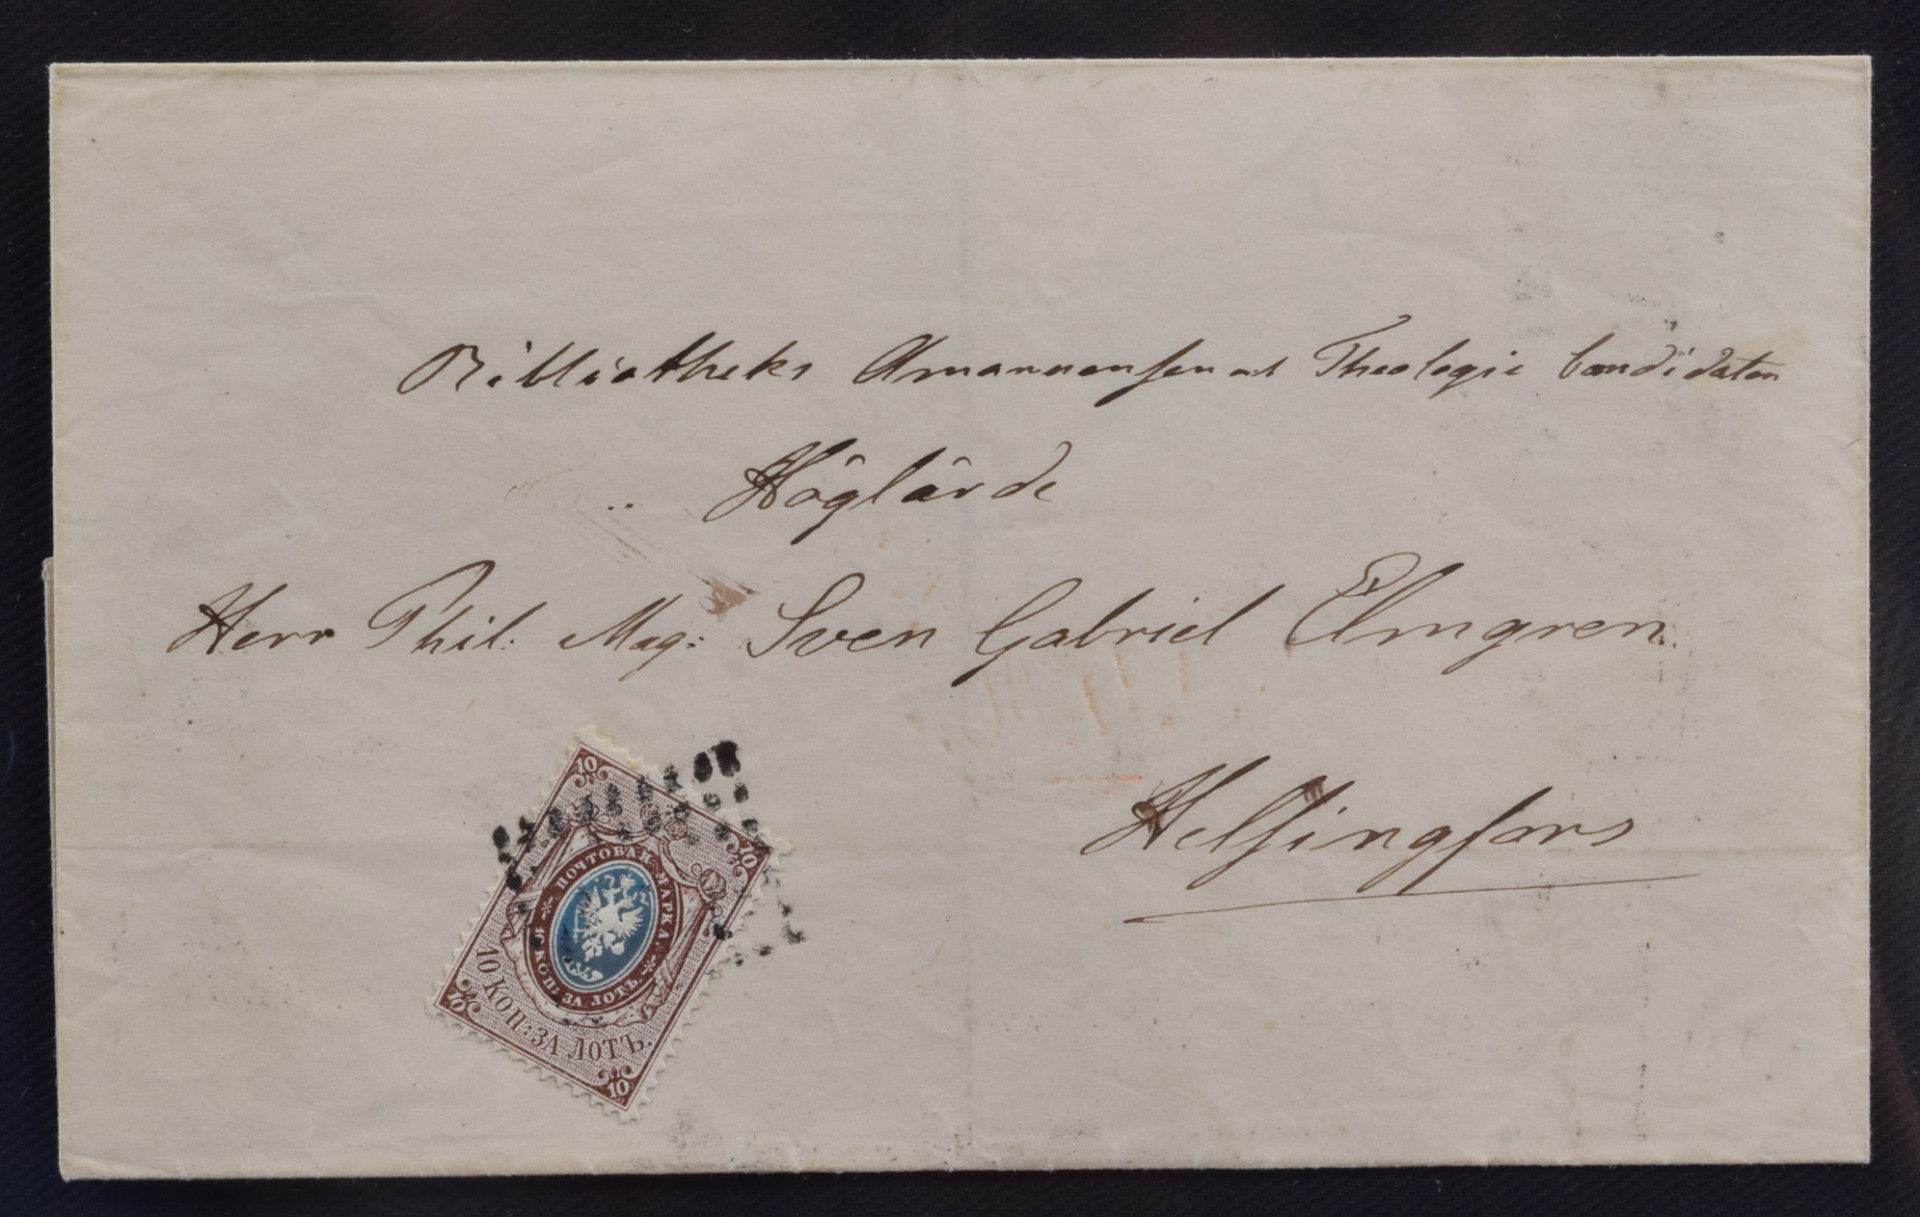 Bibliotheks Amanuensen och Theologie Candidaten
Höglärde
Herr Phil: Mag: Sven Gabriel Elmgren.
Helsingfors
10
10
ПОЧТОВАЯ МАРКА.
10 КОП: ЗА ЛОТЪ.
10 КОП: ЗА ЛОТЪ.
10
10